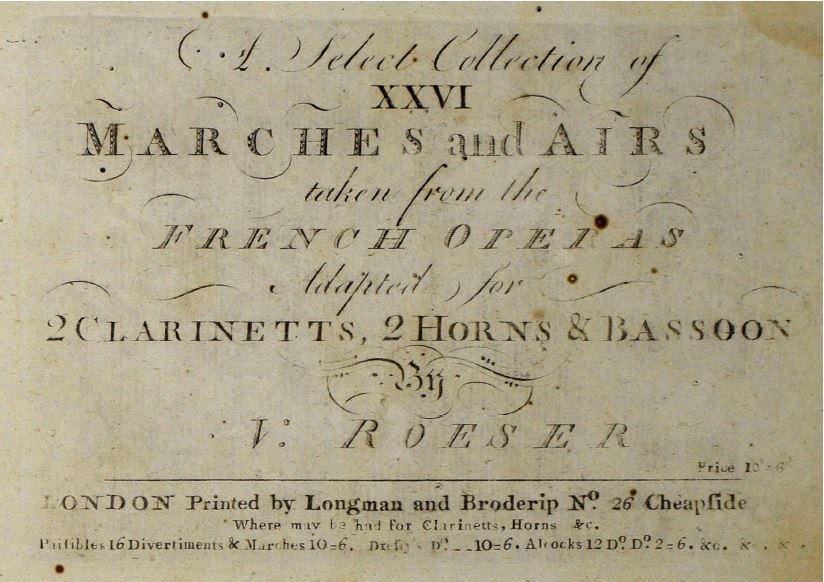 A Select Collection of
XXVI
MARCHES and AIRS
taken from the
FRENCH OPERAS
Adapted for
2 CLARINETTS, 2 HORNS & BASSOON
By
V. ROESER
Price 10=6
LONDON Printed by Longman and Broderip No. 26 Cheapſide
Where may be had for Clarinetts, Horns &c.
Paiſibles 16 Divertiments & Marches 10=6. Do. 10=6. Alcocks 12 Do. Do. 2=6. &c. &. &.